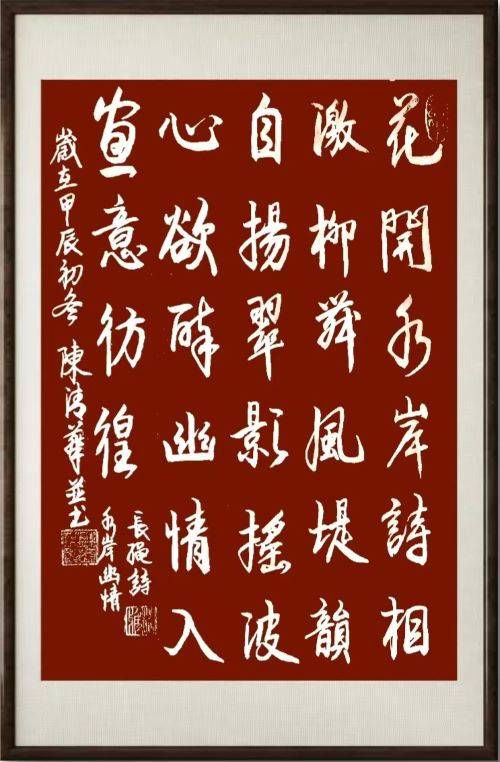 花開水岸詩相
激柳舞風堤韻
自揚翠影搖波
心欲醉幽情入
畫意彷徨
長詩
水岸幽情
歲在甲辰初冬 陳清華並书